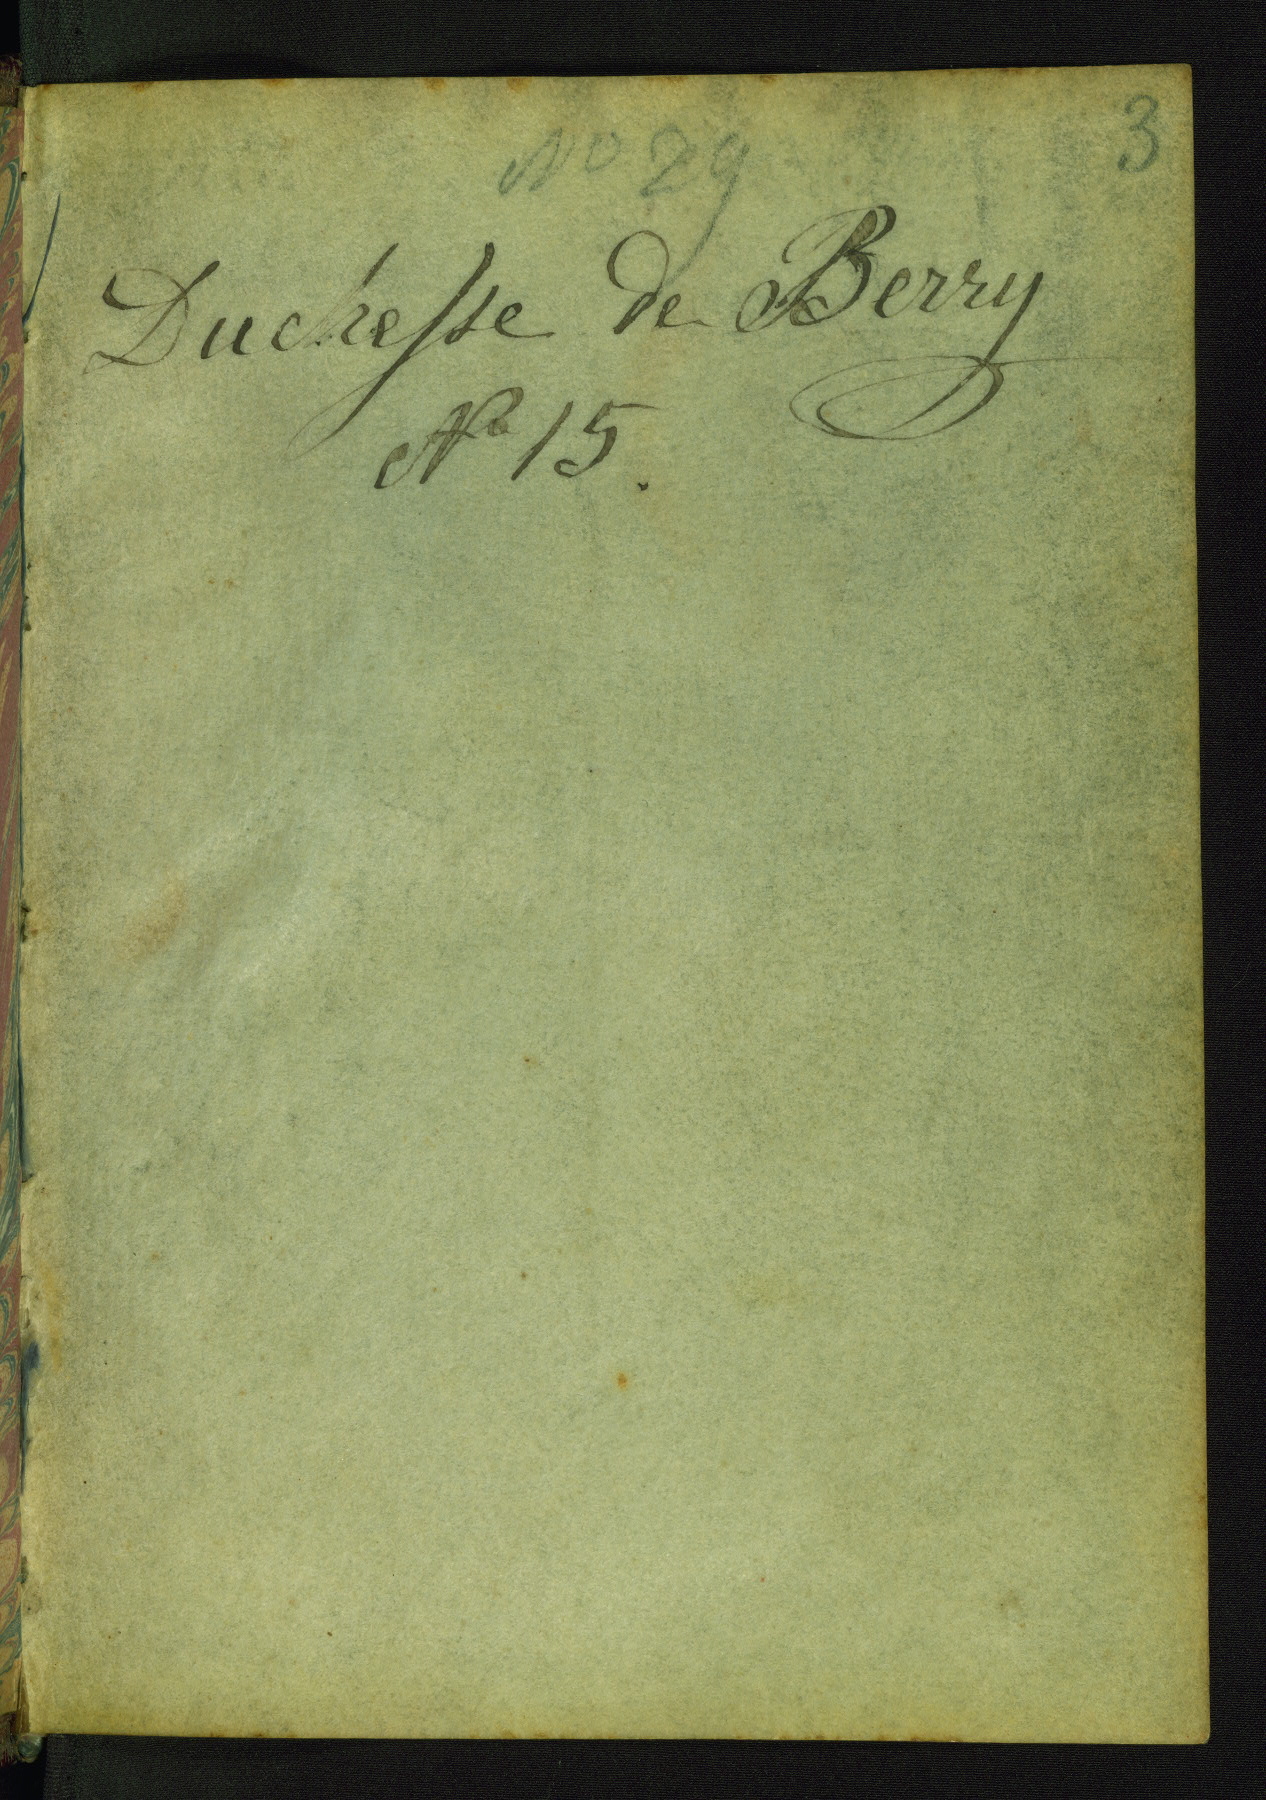 3
No 29
Duchesse de Berry
No 15.